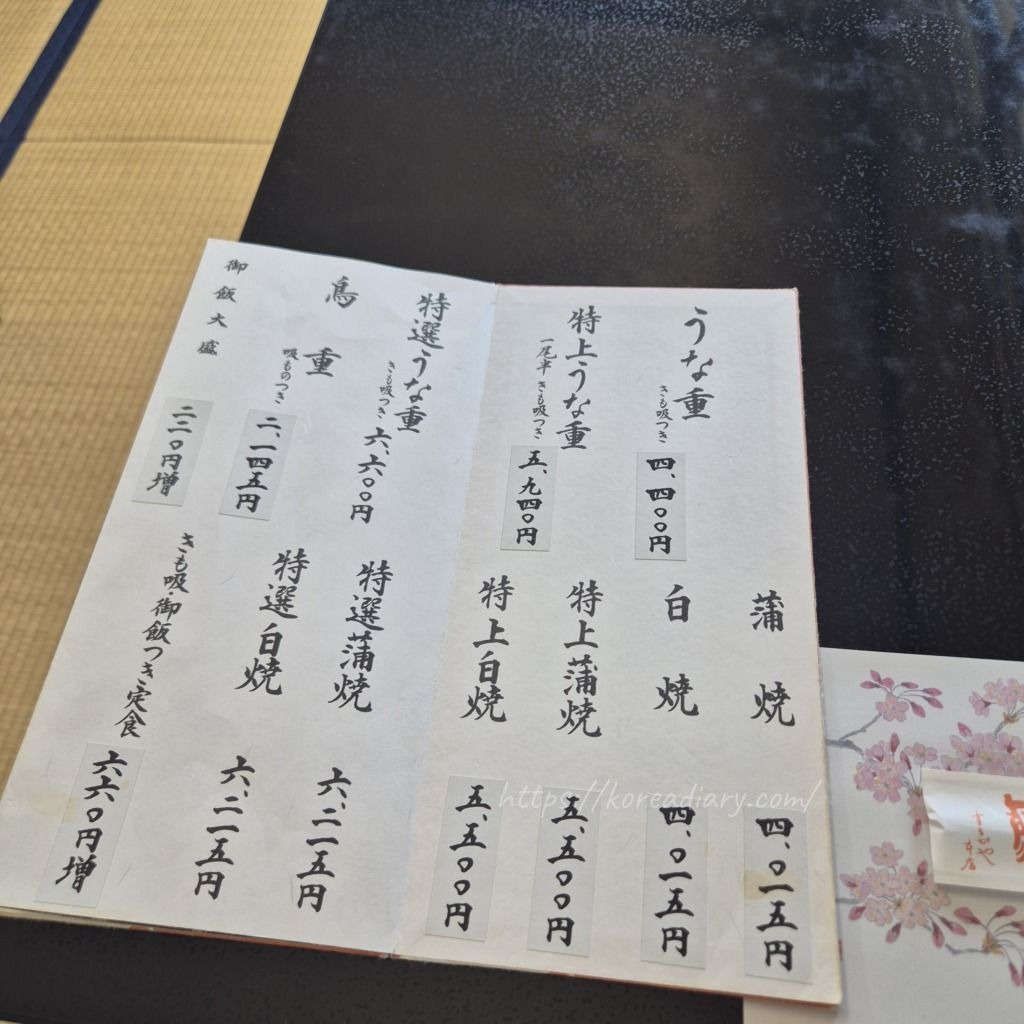 うな重
きも吸つき
四、四〇〇円
特上うな重
一尾半 きも吸つき
五、九四〇円
蒲焼
四、〇一五円
白焼
四、〇一五円
特上蒲焼
五、五〇〇円
特上白焼
五、五〇〇円
特選うな重
きも吸つき
六、六〇〇円
鳥重
吸ものつき
二、一四五円
御飯大盛
二二〇円増
特選蒲焼
六、二一五円
特選白焼
六、二一五円
きも吸・御飯つき定食
六六〇円増
https://koreadiary.com/
本店